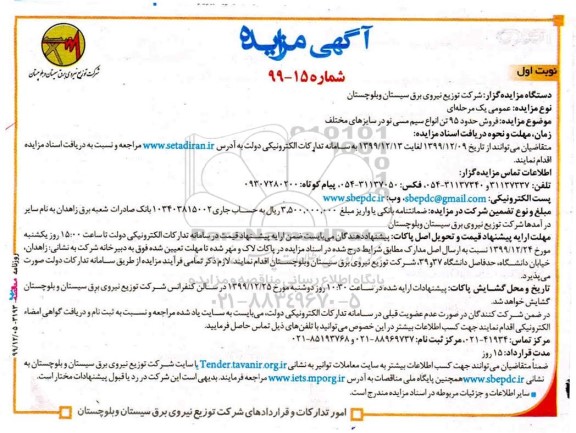 آگهی مزایده
شماره ۱۵-۹۹
نوبت اول
شرکت توزیع نیروی برق سیستان و بلوچستان
دستگاه مزایده‌گزار: شرکت توزیع نیروی برق سیستان وبلوچستان
نوع مزایده: عمومی یک مرحله‌ای
موضوع مزایده: فروش حدود ۹۵ تن انواع سیم مسی نو در سایزهای مختلف
زمان، مهلت و نحوه دریافت اسناد مزایده:
متقاضیان می‌توانند از تاریخ ۱۳۹۹/۱۲/۰۹ لغایت ۱۳۹۹/۱۲/۱۳ به سامانه تدارکات الکترونیکی دولت به آدرس www.setadiran.ir مراجعه و نسبت به دریافت اسناد مزایده
اقدام نمایند.
اطلاعات تماس مزایده‌گزار:
تلفن: ۳۱۱۳۷۳۳۷ و ۳۱۱۳۷۳۴۰-۰۵۴، فکس: ۳۱۱۳۷۰۵۰-۰۵۴، پیام کوتاه: ۰۹۳۰۷۲۸۰۲۰۰
پست الکترونیکی: sbepdc@gmail.com، وب: www.sbepdc.ir
مبلغ و نوع تضمین شرکت در مزایده: ضمانتنامه بانکی یا واریز مبلغ ۳,۵۰۰,۰۰۰,۰۰۰ ریال به حساب جاری ۰۱۰۳۴۰۳۸۱۵۰۰۲ بانک صادرات شعبه برق زاهدان به نام سایر
در آمدها شرکت توزیع نیروی برق سیستان وبلوچستان
مهلت ارایه پیشنهاد قیمت و تحویل اصل پاکات: پیشنهاددهندگان می‌بایست ضمن ارایه پیشنهاد قیمت در سامانه تدارکات الکترونیکی دولت تا ساعت ۱۵:۰۰ روز یکشنبه
مورخ ۱۳۹۹/۱۲/۲۴ نسبت به ارسال اصل مدارک مطابق شرایط درج شده در اسناد مزایده در پاکات لاک و مهر شده تا مهلت تعیین شده فوق به دبیرخانه شرکت به نشانی: زاهدان،
خیابان دانشگاه، حدفاصل دانشگاه ۳۷و۳۹، شرکت توزیع نیروی برق سیستان وبلوچستان اقدام نمایند. لازم ذکر تمامی فرآیند مزایده از طریق سامانه تدارکات دولت صورت
می‌پذیرد.
تاریخ و محل گشایش پاکات: پیشنهادات ارایه شده در ساعت ۱۰:۳۰ روز دوشنبه مورخ ۱۳۹۹/۱۲/۲۵ در سالن کنفرانس شرکت توزیع نیروی برق سیستان و بلوچستان
گشایش خواهد شد.
در ضمن شرکت کنندگان در صورت عدم عضویت قبلی در سامانه تدارکات الکترونیکی دولت، می‌بایست به سایت یاد شده مراجعه و نسبت به ثبت نام و دریافت گواهی امضاء
الکترونیکی اقدام نمایند جهت کسب اطلاعات بیشتر در این خصوص می‌توانید با تلفن‌های ذیل تماس حاصل فرمایید.
مرکز تماس: ۴۱۹۳۴-۰۲۱، دفتر ثبت نام: ۸۸۹۶۹۷۳۷-۰۲۱ و ۸۵۱۹۳۷۶۸-۰۲۱
مدت قرارداد: ۱۵ روز
ضمناً متقاضیان می‌توانند جهت کسب اطلاعات بیشتر به سایت معاملات توانیر به نشانی Tender.tavanir.org.ir یا سایت شرکت توزیع نیروی برق سیستان و بلوچستان به
نشانی www.sbepdc.ir و همچنین پایگاه ملی مناقصات به آدرس www.iets.mporg.ir مراجعه فرمایند. بدیهی است این شرکت در رد یا قبول پیشنهادات مختار است.
سایر اطلاعات و جزئیات مربوطه در اسناد مزایده مندرج است.
امور تدارکات و قراردادهای شرکت توزیع نیروی برق سیستان وبلوچستان
پایگاه اطلاع رسانی مناقصه و مزایده
۰۲۱-۸۸۳۴۹۶۷۰-۵